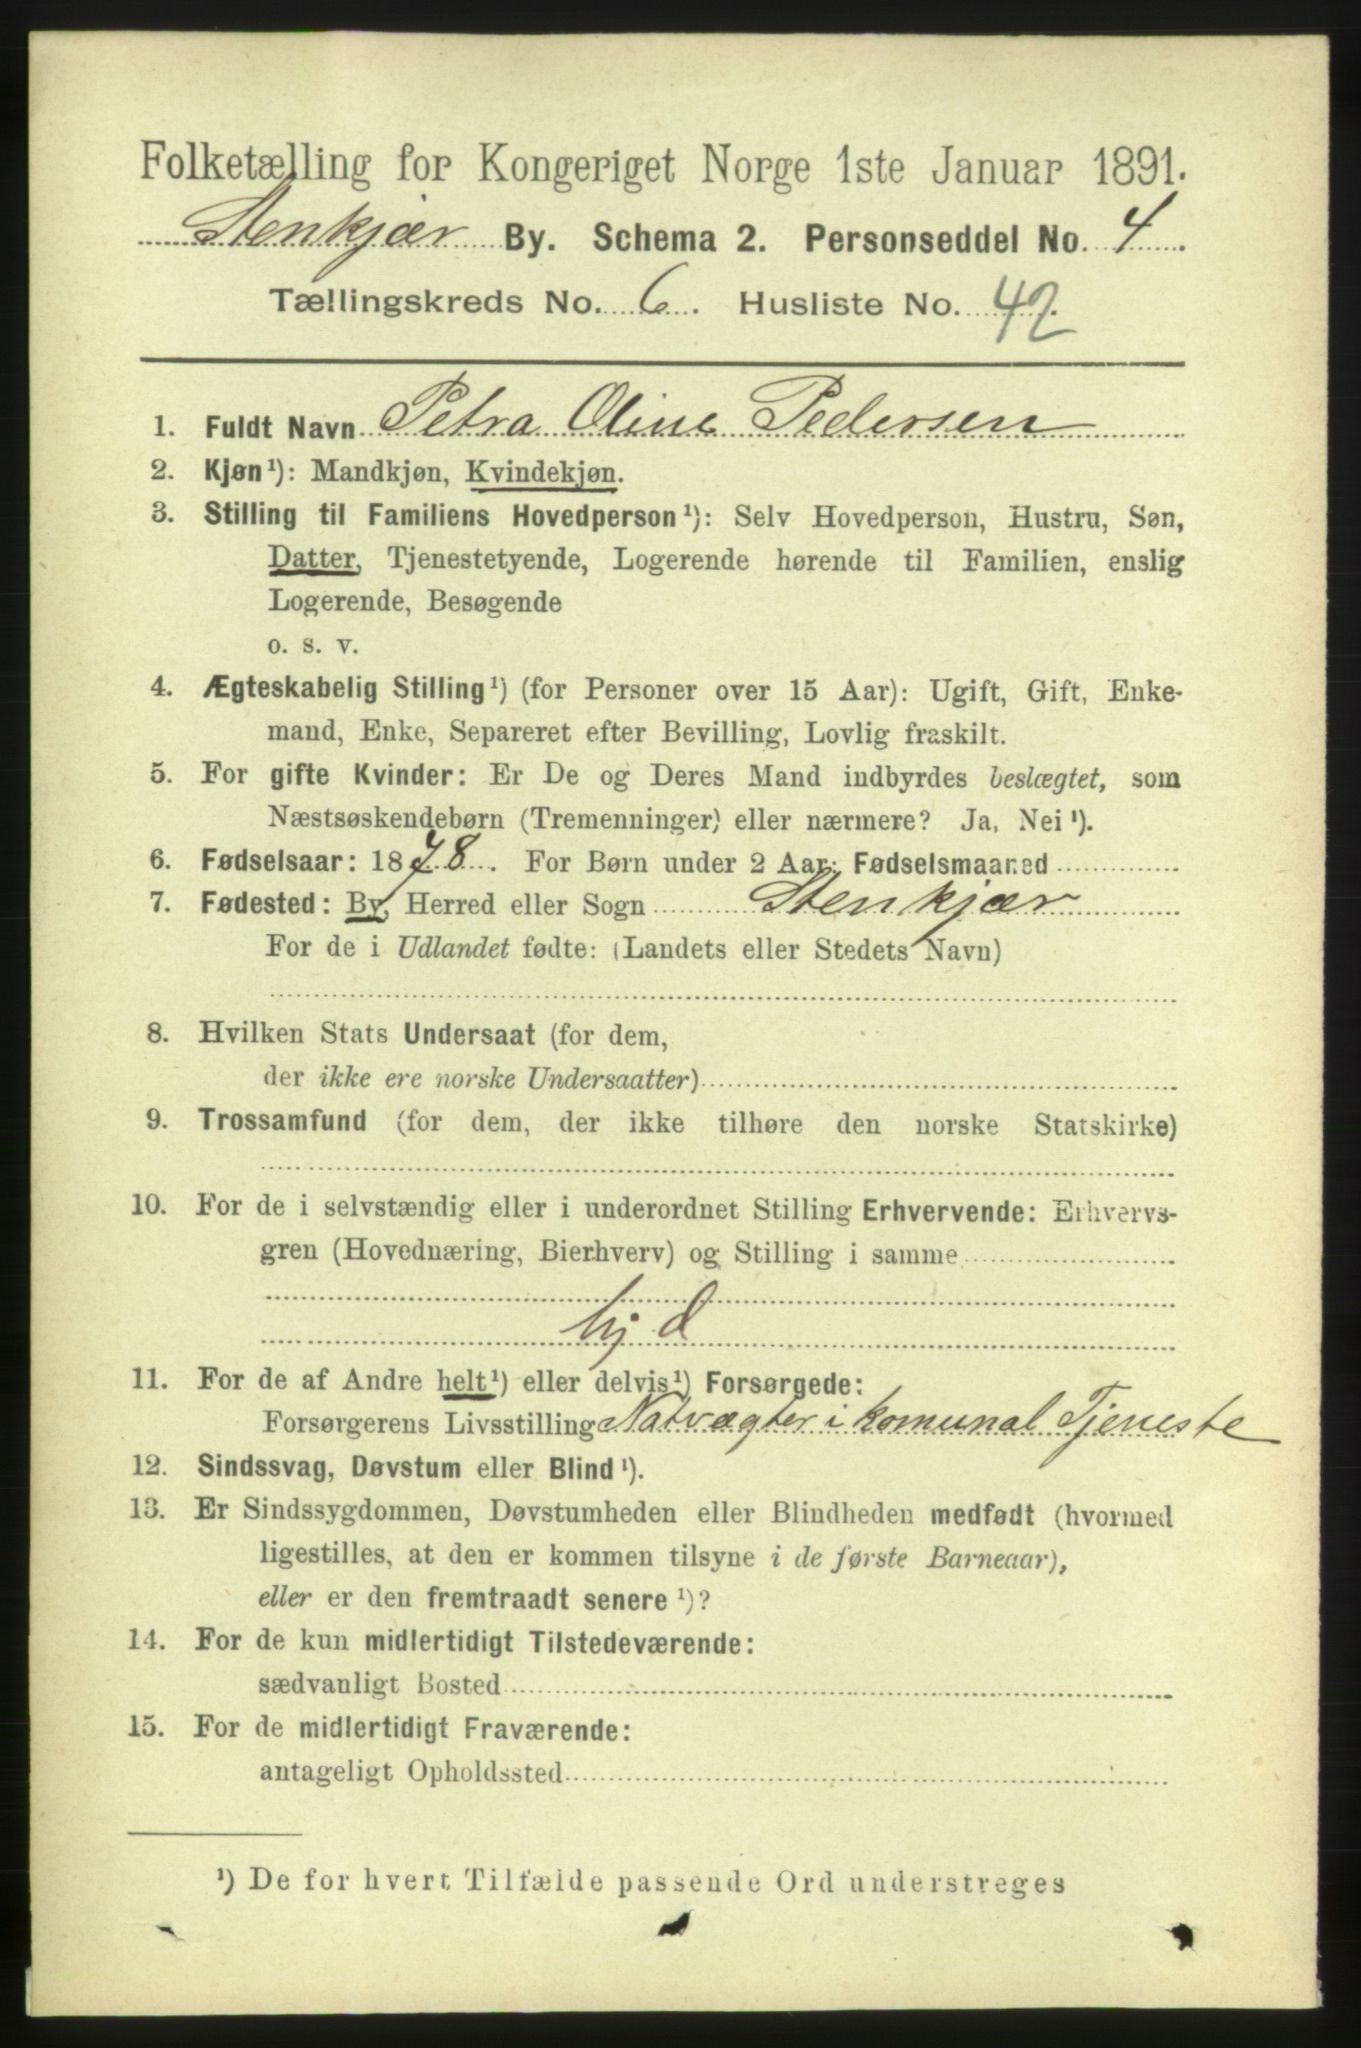 Folketælling for Kongeriget Norge 1ste Januar 1891.
Stenkjær By. Schema 2. Personseddel No. 4.
Tællingskreds No. 6. Husliste No. 42.
1. Fuldt Navn Petra Oline Pedersen
2. Kjøn¹): Mandkjøn, Kvindekjøn.
3. Stilling til Familiens Hovedperson¹): Selv Hovedperson, Hustru, Søn,
Datter, Tjenestetyende, Logerende hørende til Familien, enslig
Logerende, Besøgende
o. s. v.
4. Ægteskabelig Stilling¹) (for Personer over 15 Aar): Ugift, Gift, Enke-
mand, Enke, Separeret efter Bevilling, Lovlig fraskilt.
5. For gifte Kvinder: Er De og Deres Mand indbyrdes beslægtet, som
Næstsøskendebørn (Tremenninger) eller nærmere? Ja, Nei¹).
6. Fødselsaar: 1878. For Børn under 2 Aar: Fødselsmaaned
7. Fødested: By, Herred eller Sogn Stenkjær
For de i Udlandet fødte: (Landets eller Stedets Navn)
8. Hvilken Stats Undersaat (for dem,
der ikke ere norske Undersaatter)
9. Trossamfund (for dem, der ikke tilhøre den norske Statskirke)
10. For de i selvstændig eller i underordnet Stilling Erhvervende: Erhvervs-
gren (Hovednæring, Bierhverv) og Stilling i samme
hj d
11. For de af Andre helt¹) eller delvis¹) Forsørgede:
Forsørgerens Livsstilling Natvægter i komunal Tjeneste
12. Sindssvag, Døvstum eller Blind¹).
13. Er Sindssygdommen, Døvstumheden eller Blindheden medfødt (hvormed
ligestilles, at den er kommen tilsyne i de første Barneaar),
eller er den fremtraadt senere¹)?
14. For de kun midlertidigt Tilstedeværende:
sædvanligt Bosted
15. For de midlertidigt Fraværende:
antageligt Opholdssted
¹) De for hvert Tilfælde passende Ord understreges